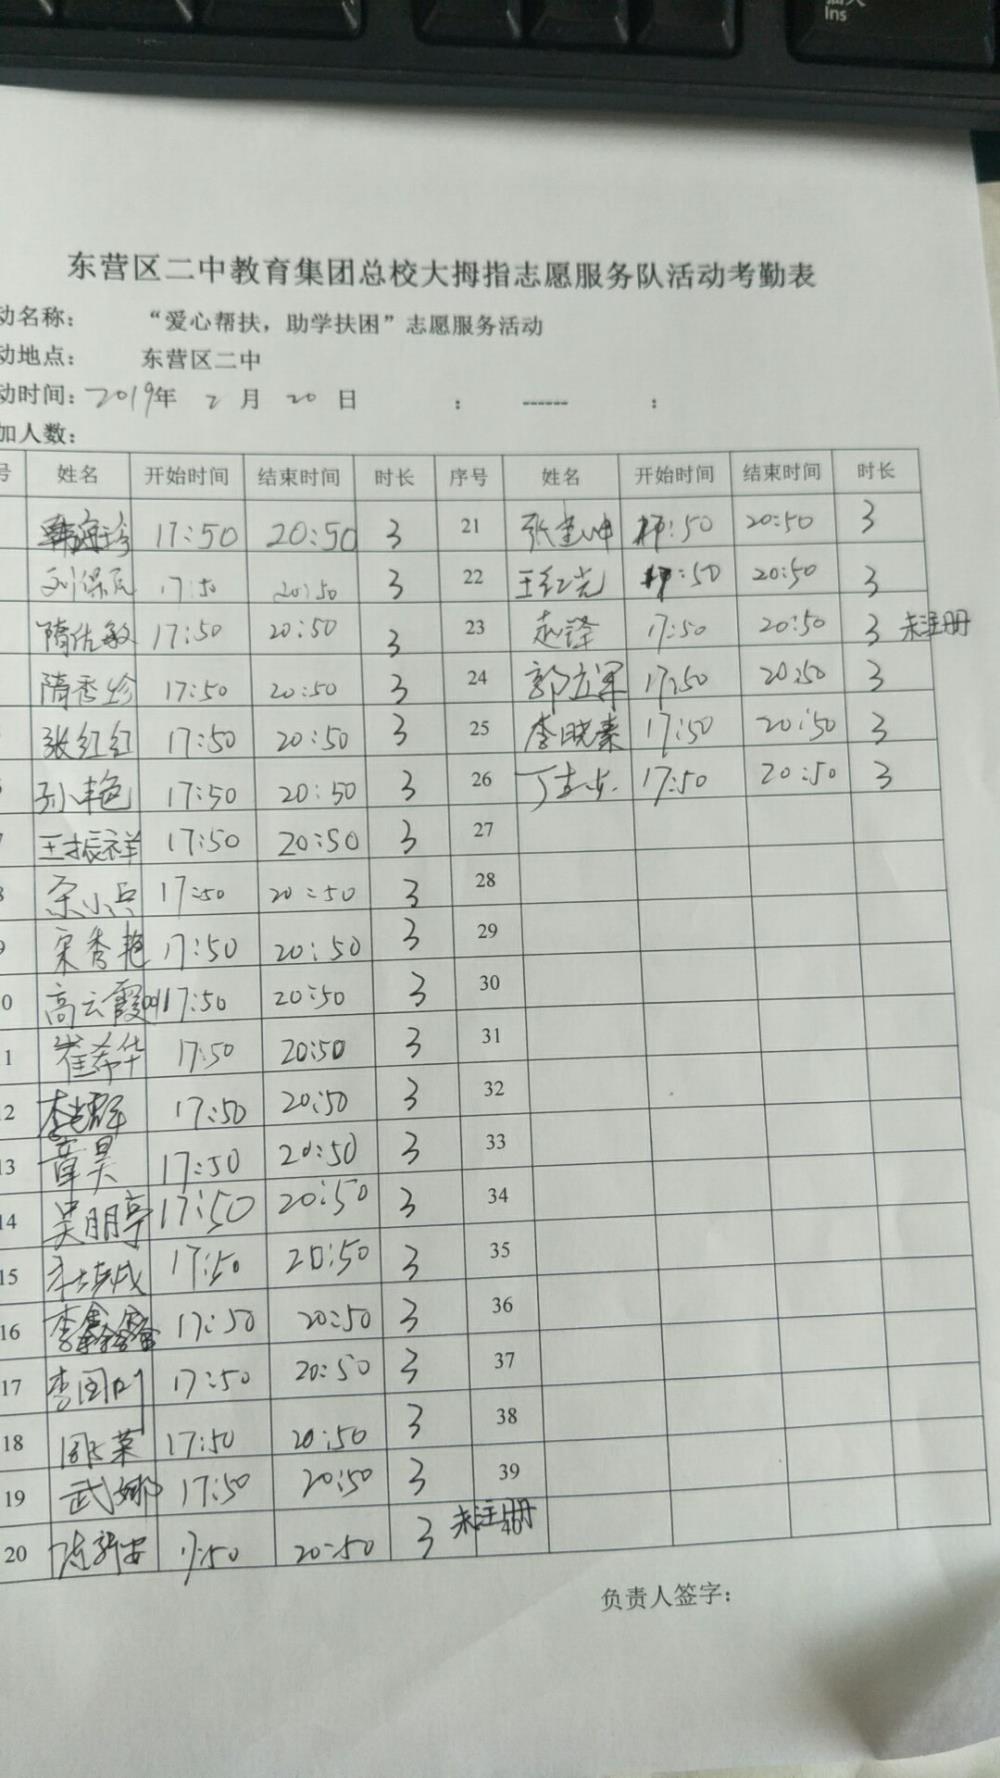 Ins
东营区二中教育集团总校大拇指志愿服务队活动考勤表
动名称： “爱心帮扶，助学扶困”志愿服务活动
动地点： 东营区二中
动时间：2019年 2 月 20 日 ： ------ ：
加人数：
号 姓名 开始时间 结束时间 时长 序号 姓名 开始时间 结束时间 时长
17:50 20:50 3 21 张建坤 17:50 20:50 3
刘保民 17:50 20:50 3 22 王红光 17:50 20:50 3
隋佐敏 17:50 20:50 3 23 赵锋 17:50 20:50 3 未注册
隋秀珍 17:50 20:50 3 24 郭立军 17:50 20:50 3
张红红 17:50 20:50 3 25 李晓素 17:50 20:50 3
孙艳 17:50 20:50 3 26 17:50 20:50 3
王振祥 17:50 20:50 3 27
余小兵 17:50 20:50 3 28
9 宋秀艳 17:50 20:50 3 29
0 高云霞 17:50 20:50 3 30
1 崔希华 17:50 20:50 3 31
2 17:50 20:50 3 32
13 章昊 17:50 20:50 3 33
14 吴朋亭 17:50 20:50 3 34
15 17:50 20:50 3 35
16 李鑫鑫 17:50 20:50 3 36
17 李国明 17:50 20:50 3 37
18 17:50 20:50 3 38
19 武娜 17:50 20:50 3 39
20 陈新安 17:50 20:50 3 未注册 40
负责人签字：